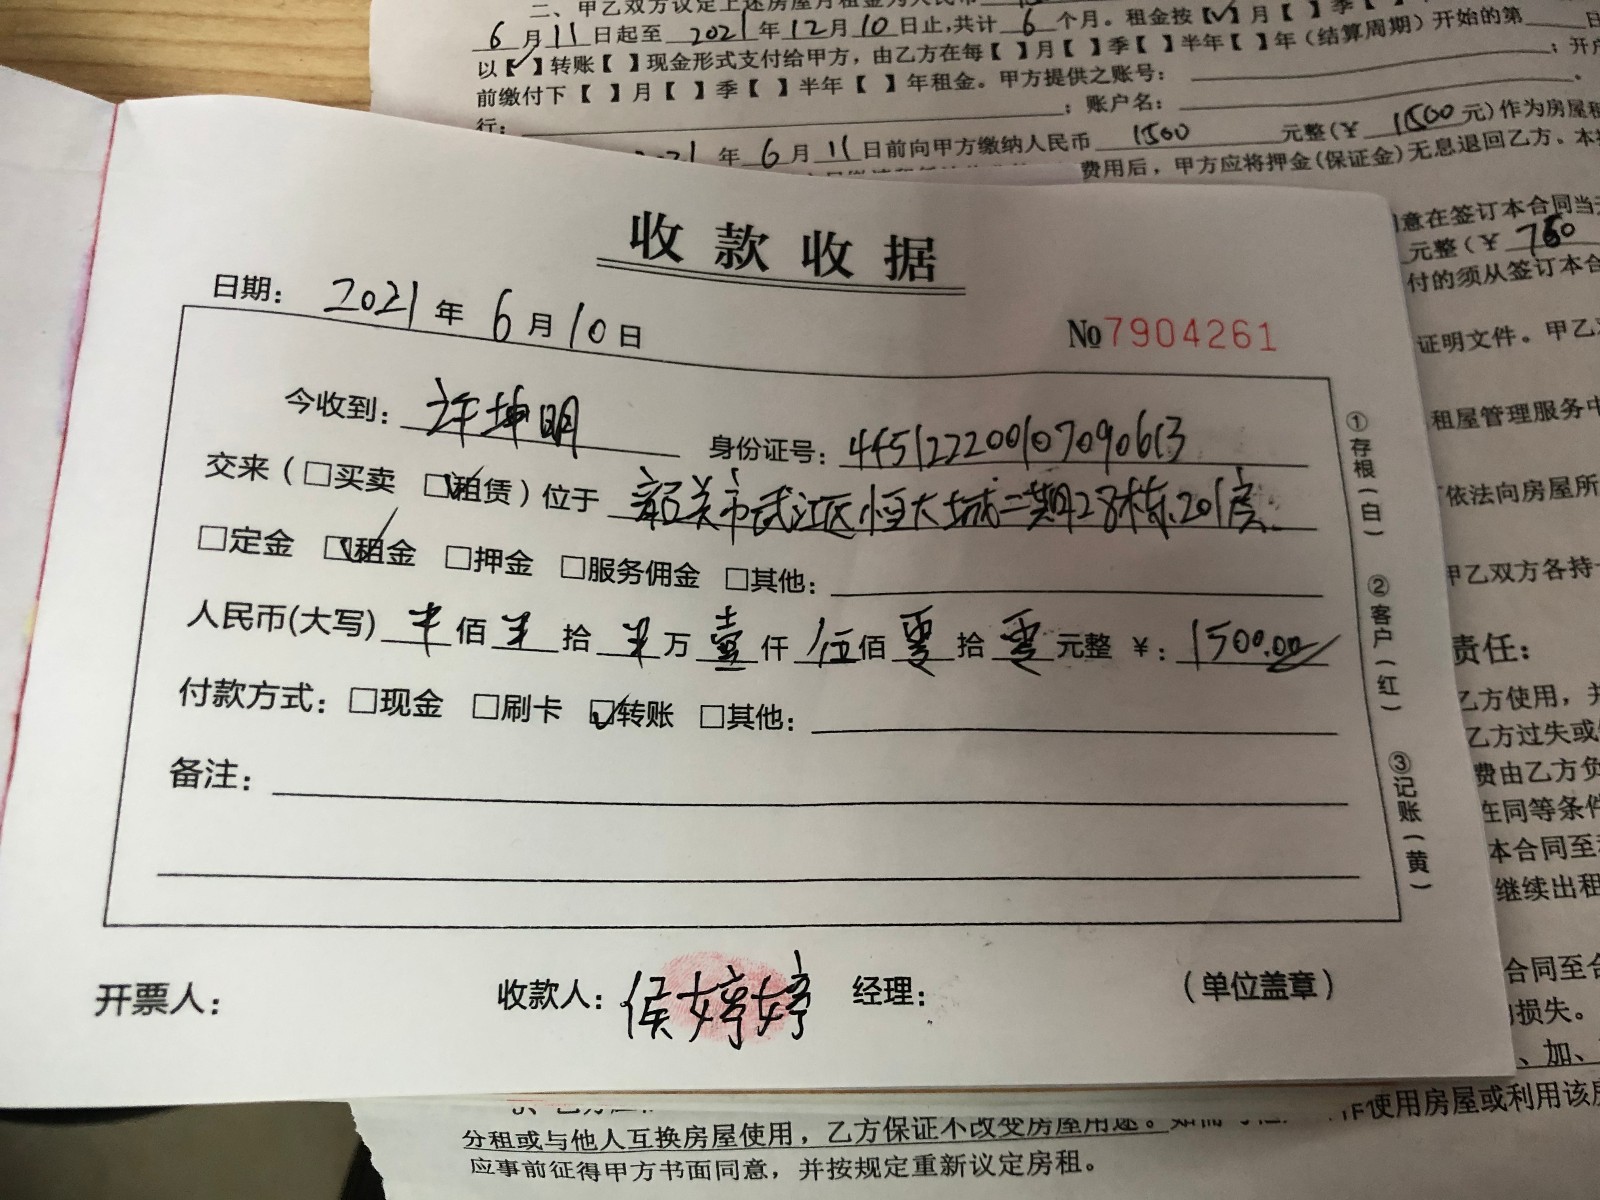 二、甲乙双方议定上述房屋月租金为人民币
6月11日起至 2021年12月10日止,共计 6 个月。租金按【✓】月【 】季【
以【✓】转账【 】现金形式支付给甲方，由乙方在每【 】月【 】季【 】半年【 】年（结算周期）开始的第
前缴付下【 】月【 】季【 】半年【 】年租金。甲方提供之账号： ；开户
行： ；账户名： 。
2021年6月11日前向甲方缴纳人民币 1500 元整(￥ 1500 元)作为房屋租
费用后，甲方应将押金(保证金)无息退回乙方。本
意在签订本合同当
元整（￥ 750
付的须从签订本合
收款收据
日期： 2021年6月10日
№7904261
证明文件。甲乙
今收到：许坤明 身份证号：445122200107090613
租屋管理服务中
交来（□买卖 ☑租赁）位于 韶关市武江区恒大城二期28栋201房
依法向房屋所
□定金 ☑租金 □押金 □服务佣金 □其他：
甲乙双方各持
人民币(大写) 佰 拾 万壹仟伍佰零拾零元整 ￥：1500.00
责任：
付款方式：□现金 □刷卡 ☑转账 □其他：
乙方使用，并
乙方过失或
备注：
费由乙方负
在同等条件
本合同至
继续出租
①存根(白) ②客户(红) ③记账(黄)
开票人： 收款人：侯婷婷 经理： （单位盖章）
合同至合
损失。
、加、
使用房屋或利用该房
分租或与他人互换房屋使用，乙方保证不改变房屋用途。
应事前征得甲方书面同意，并按规定重新议定房租。